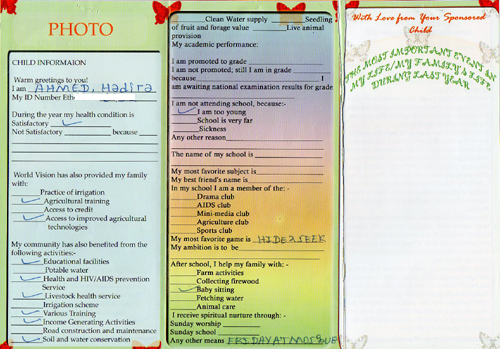 PHOTO
CHILD INFORMAION
Warm greetings to you!
I am AHMED, Hadira
My ID Number Eth
During the year my health condition is
Satisfactory ✓
Not Satisfactory ________ because ____
World Vision has also provided my family
with:
______Practice of irrigation
__✓__Agricultural training
______Access to credit
__✓__Access to improved agricultural
technologies
My community has also benefited from the
following activities:-
__✓__Educational facilities
______Potable water
__✓__Health and HIV/AIDS prevention
Service
__✓__Livestock health service
______Irrigation scheme
__✓__Various Training
__✓__Income Generating Activities
______Road construction and maintenance
__✓__Soil and water conservation
________Clean Water supply ________ Seedling
of fruit and forage value ________Live animal
provision
My academic performance:
I am promoted to grade ________
I am not promoted; still I am in grade ________
because________ I
am awaiting national examination results for grade
I am not attending school, because:-
__✓__I am too young
______School is very far
______Sickness
Any other reason________
The name of my school is________
My most favorite subject is________
My best friend's name is________
In my school I am a member of the: -
______Drama club
______AIDS club
______Mini-media club
______Agriculture club
______Sports club
My most favorite game is HIDE & SEEK
My ambition is to be ________
After school, I help my family with: -
______Farm activities
______Collecting firewood
__✓__Baby sitting
______Fetching water
______Animal care
I receive spiritual nurture through: -
Sunday worship ________
Sunday school ________
Any other means FRIDAY AT MOSQUE
With Love from Your Sponsored
Child
THE MOST IMPORTANT EVENT IN
MY LIFE/MY FAMILY'S LIFE
DURING LAST YEAR